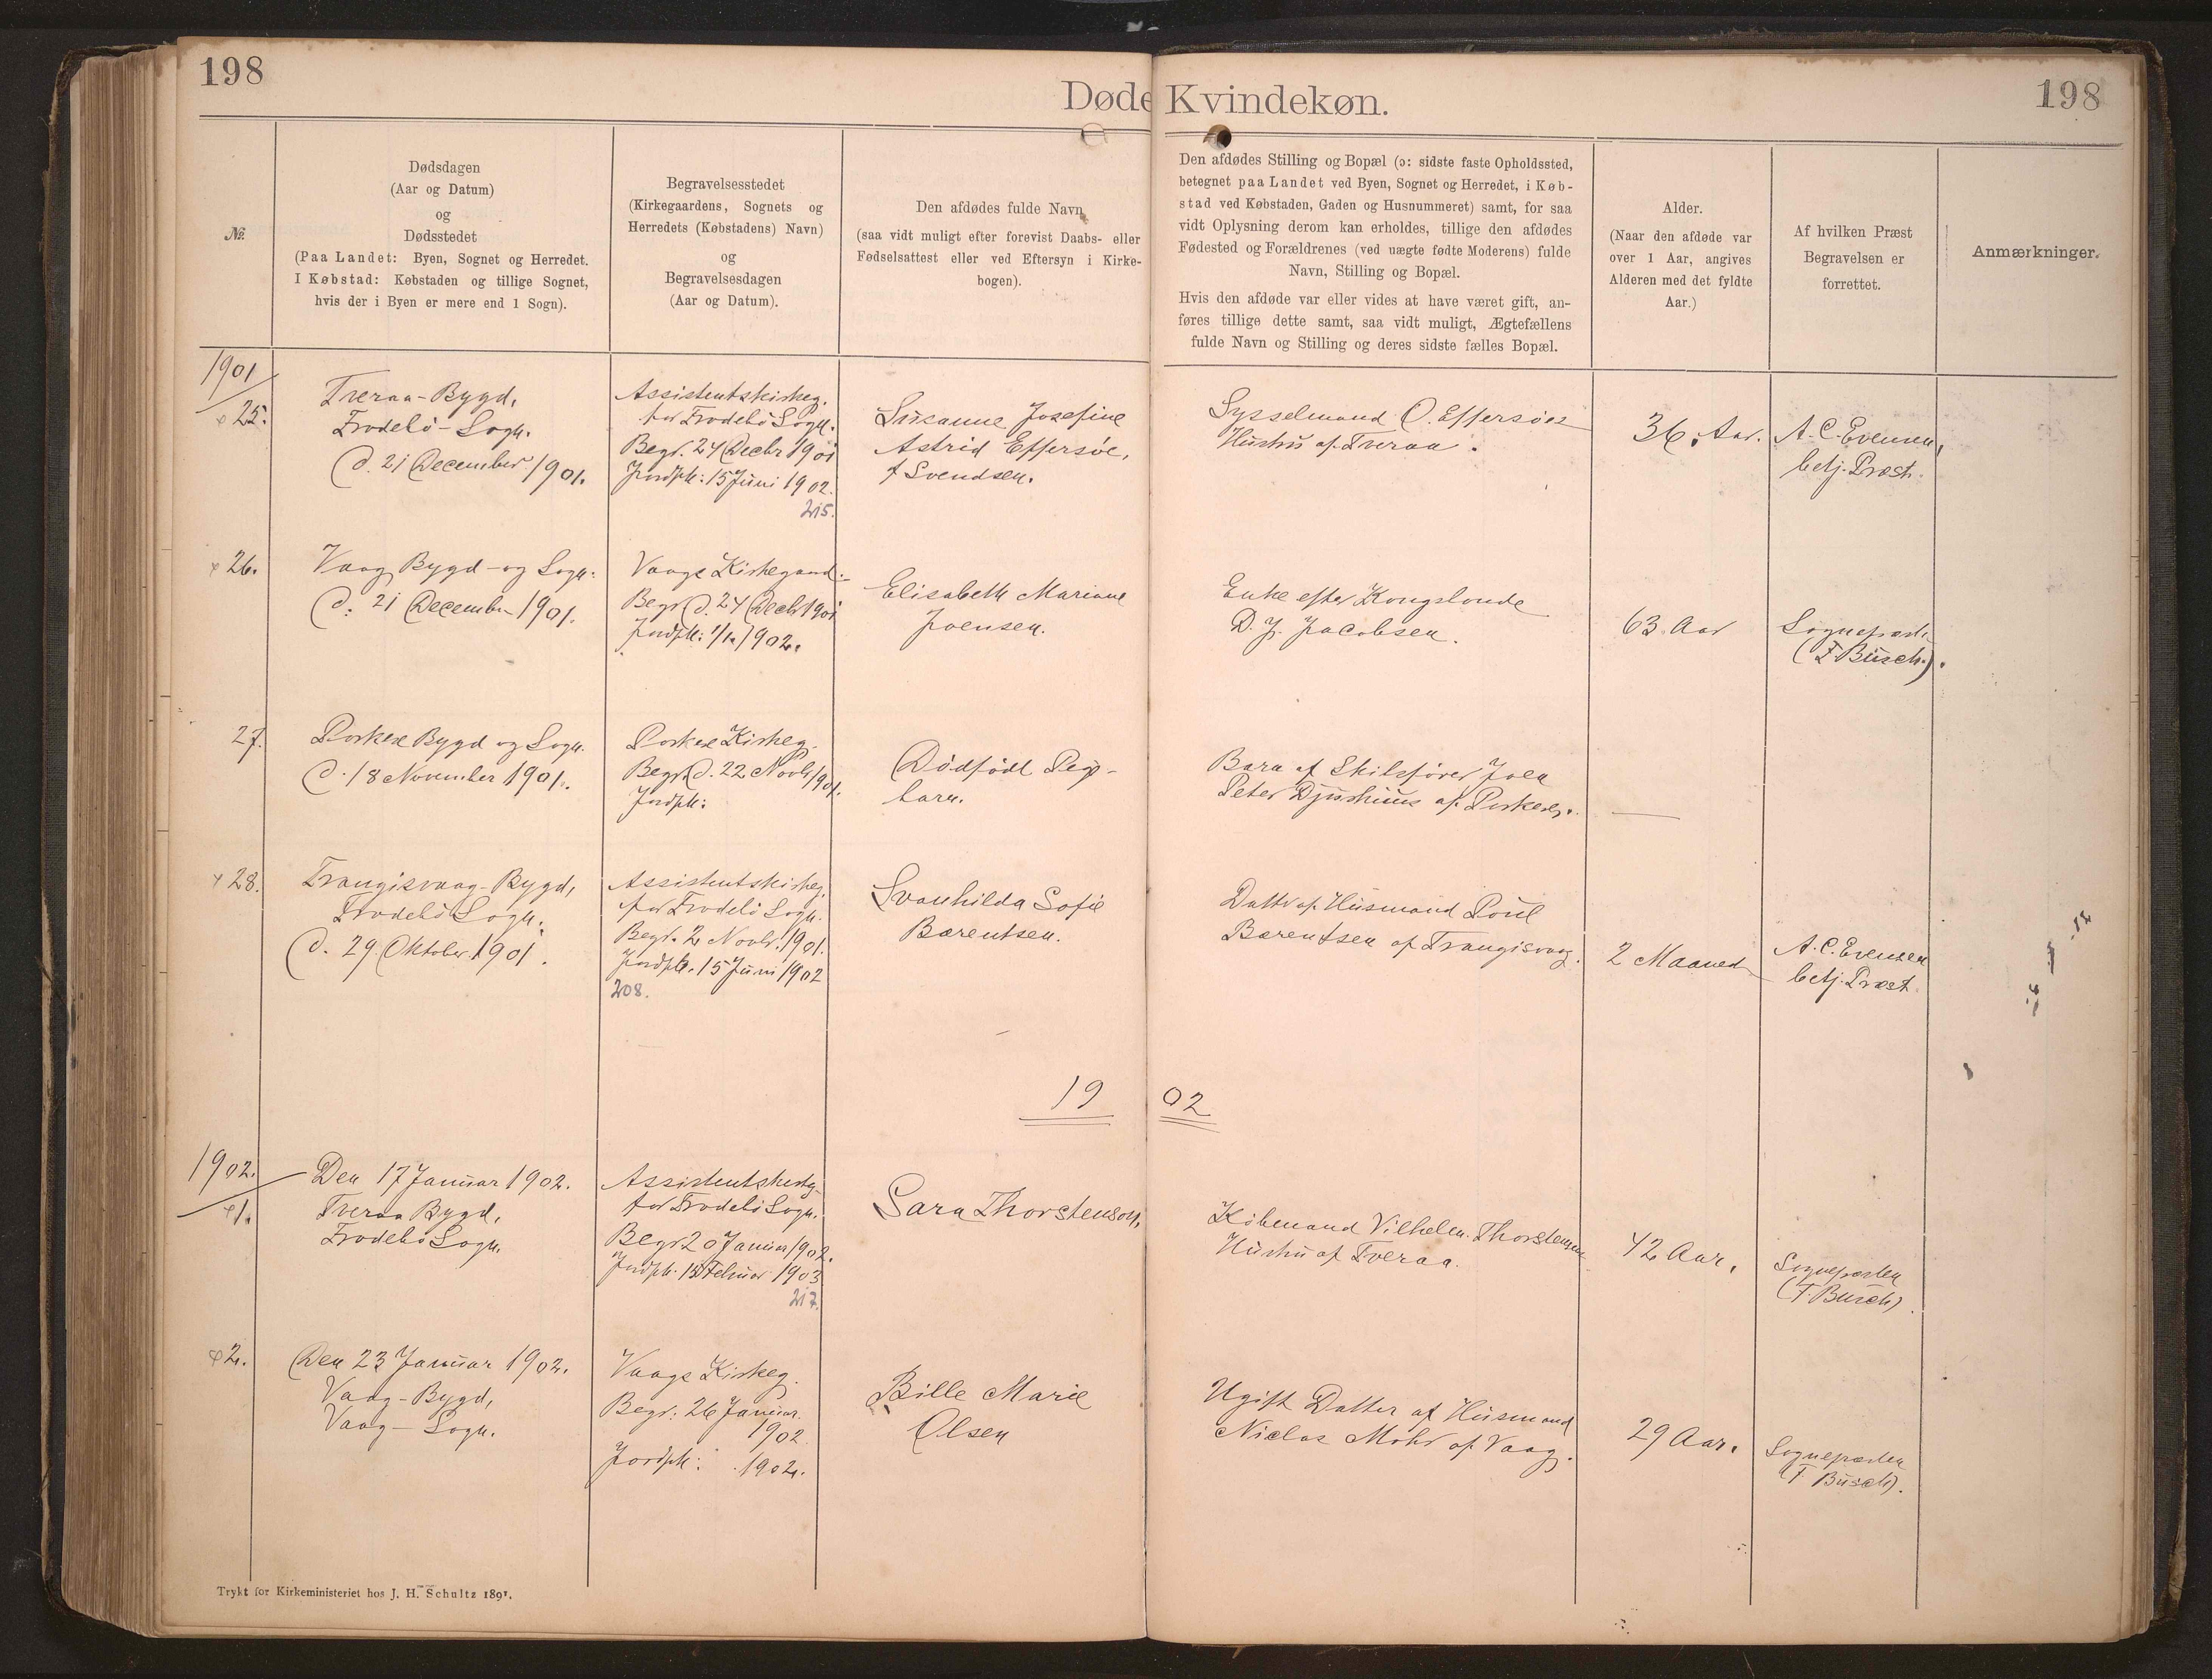 198
198
Døde Kvindekøn.
№
Dødsdagen
(Aar og Datum)
og
Dødsstedet
(Paa Landet: Byen, Sognet og Herredet.
I Købstad: Købstaden og tillige Sognet,
hvis der i Byen er mere end 1 Sogn).
Begravelsesstedet
(Kirkegaardens, Sognets og
Herredets (Købstadens) Navn)
og
Begravelsesdagen
(Aar og Datum).
Den afdødes fulde Navn
(saa vidt muligt efter forevist Daabs- eller
Fødselsattest eller ved Eftersyn i Kirke-
bogen).
Den afdødes Stilling og Bopæl (ɔ: sidste faste Opholdssted,
betegnet paa Landet ved Byen, Sognet og Herredet, i Køb-
stad ved Købstaden, Gaden og Husnummeret) samt, for saa
vidt Oplysning derom kan erholdes, tillige den afdødes
Fødested og Forældrenes (ved uægte fødte Moderens) fulde
Navn, Stilling og Bopæl.
Hvis den afdøde var eller vides at have været gift, an-
føres tillige dette samt, saa vidt muligt, Ægtefællens
fulde Navn og Stilling og deres sidste fælles Bopæl.
Alder.
(Naar den afdøde var
over 1 Aar, angives
Alderen med det fyldte
Aar.)
Af hvilken Præst
Begravelsen er
forrettet.
Anmærkninger.
1901
25.
Tveraa-Bygd,
Frodebø-Sogn.
d. 21 December 1901.
Assistentskirkeg.
for Frodebø Sogn.
Begr. 24 Decbr 1901
Jordpk: 15 Juni 1902.
215.
Susanne Josefine
Astrid Effersøe,
f Svendsen.
Sysselmand O. Effersøes
Hustru af Tveraa.
36. Aar.
A. C. Evensen,
betj. Præst.
26.
Vaag Bygd-og Sogn.
d. 21 December 1901.
Vaags Kirkegaard.
Begr d. 24 Decbr 1901
Jordpk: 1902.
Elisabeth Mariane
Joensen.
Enke efter Kongsbonde
D. J. Jacobsen.
63. Aar
Sognepræst.
(F. Busch.).
27.
Porkere Bygd og Sogn.
d. 18 November 1901.
Porkere Kirkeg.
Begr d. 22 Novbr 1901.
Jordpk:
Dødfødt Pige-
barn.
Barn af Skibsfører Joen
Peter Djurhuus af Porkere.
—
28.
Trangisvaag-Bygd,
Frodebø Sogn.
d. 29. Oktober 1901.
Assistentskirkeg.
for Frodebø Sogn.
Begr. 2 Novbr. 1901.
Jordpk. 15 Juni 1902
208.
Svanhilda Sofie
Barentsen.
Datter af Husmand Poul
Barentsen af Trangisvaag.
2 Maaned
A. C. Evensen
betj. Præst.
19 02
1902.
1.
Den 17 Januar 1902.
Tveraa Bygd,
Frodebø Sogn.
Assistentskirkeg.
for Frodebø Sogn.
Begr 20 Januar 1902.
Jordpk. 15 Februar 1903
217.
Sara Thorstenson,
Købmand Vilhelm Thorstensons
Hustru af Tveraa.
42 Aar.
Sognepræsten
(F. Busch).
2.
Den 23 Januar 1902.
Vaag-Bygd,
Vaag-Sogn.
Vaags Kirkeg.
Begr: 26 Januar.
1902
Jordpk: 1902.
Bille Marie
Olsen
Ugift Datter af Husmand
Niclas Mohr af Vaag.
29 Aar.
Sognepræsten
(F Busch).
Trykt for Kirkeministeriet hos J. H. Schultz 1891.